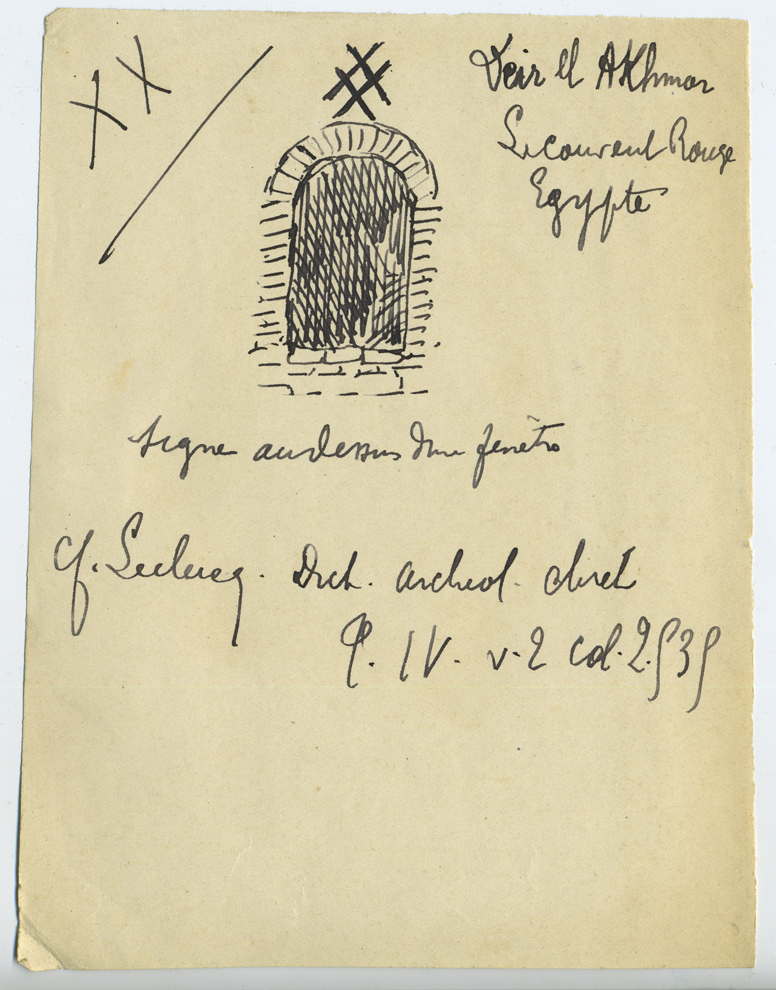 XX
Deir el Akhmar
Le couvent Rouge
Egypte
signe au dessus d'une fenêtre
cf. Leclercq. Dict. archeol. chret
T. IV. v. 2 col. 2.535